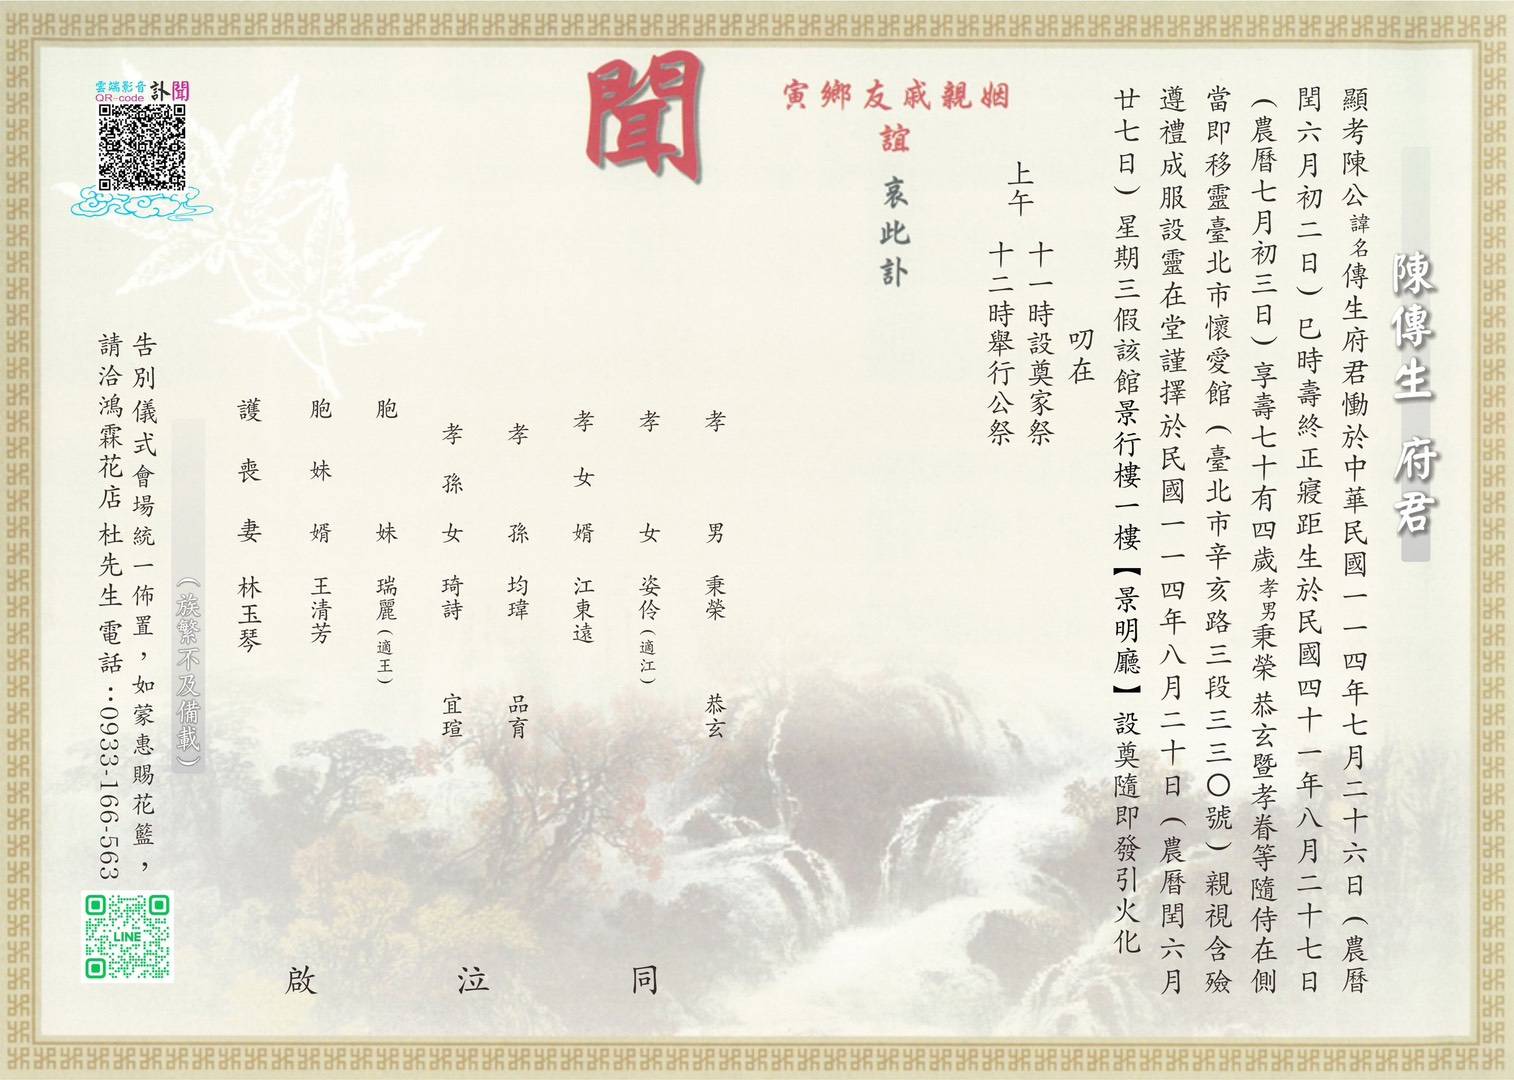 陳傳生 府君
顯考陳公諱名傳生府君慟於中華民國一一四年七月二十六日(農曆
閏六月初二日)巳時壽終正寢距生於民國四十一年八月二十七日
(農曆七月初三日)享壽七十有四歲孝男秉榮 恭玄暨孝眷等隨侍在側
當即移靈臺北市懷愛館(臺北市辛亥路三段三三〇號)親視含殮
遵禮成服設靈在堂謹擇於民國一一四年八月二十日(農曆閏六月
廿七日)星期三假該館景行樓一樓【景明廳】設奠隨即發引火化
叨在
上午
十一時設奠家祭
十二時舉行公祭
姻親戚友鄉寅
誼
哀此訃
聞
孝男 秉榮 恭玄
孝女 姿伶(適江)
孝女婿 江東遠
孝孫 均瑋 品育
孝孫女 琦詩 宜瑄
胞妹 瑞麗(適王)
胞妹婿 王清芳
護喪妻 林玉琴
同泣啟
(族繁不及備載)
告別儀式會場統一佈置,如蒙惠賜花籃,
請洽鴻霖花店 杜先生 電話:0933-166-563
雲端影音 訃聞
QR-code
LINE